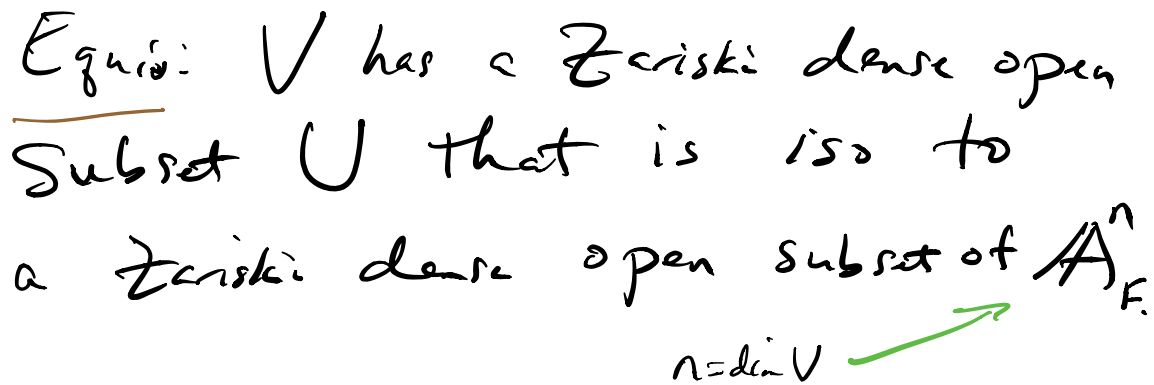 Equiv: V has a Zariski dense open
subset U that is iso to
a Zariski dense open subset of 𝔸ⁿ_F.
n = dim V